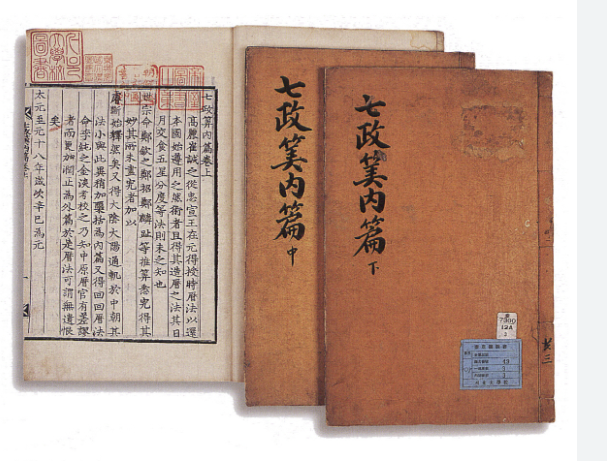 七政算内篇卷上
高麗崔誠之從忠宣王在元得授時曆法以還
本國始遵用之然術者且得其造曆之法其日
月交食五星分度等法則未之知也
世宗命鄭欽之鄭招鄭麟趾等推算悉究得其
妙其所未盡究者加以
睿斷始釋然矣又得大陰大陽通軌於中朝其
法小與此異稍加櫽括爲内篇又得回回曆法
命李純之金淡考校之乃知中原曆官有差謬
者而更加潤正爲外篇於是曆法可謂無遺恨
矣
至元十八年歲次辛巳爲元
七政筭内篇 中
七政筭内篇 下
12A